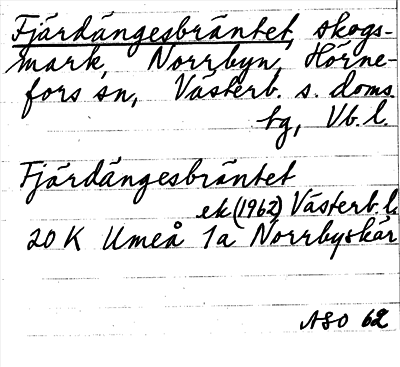 Fjärdängesbräntet, skogs-
mark, Norrbyn, Hörne-
fors sn, Västerb. s. doms.
tg, Vb. l.
Fjärdängesbräntet
ek (1962) Västerb. l.
20 K Umeå 1a Norrbyskär
ASO 62